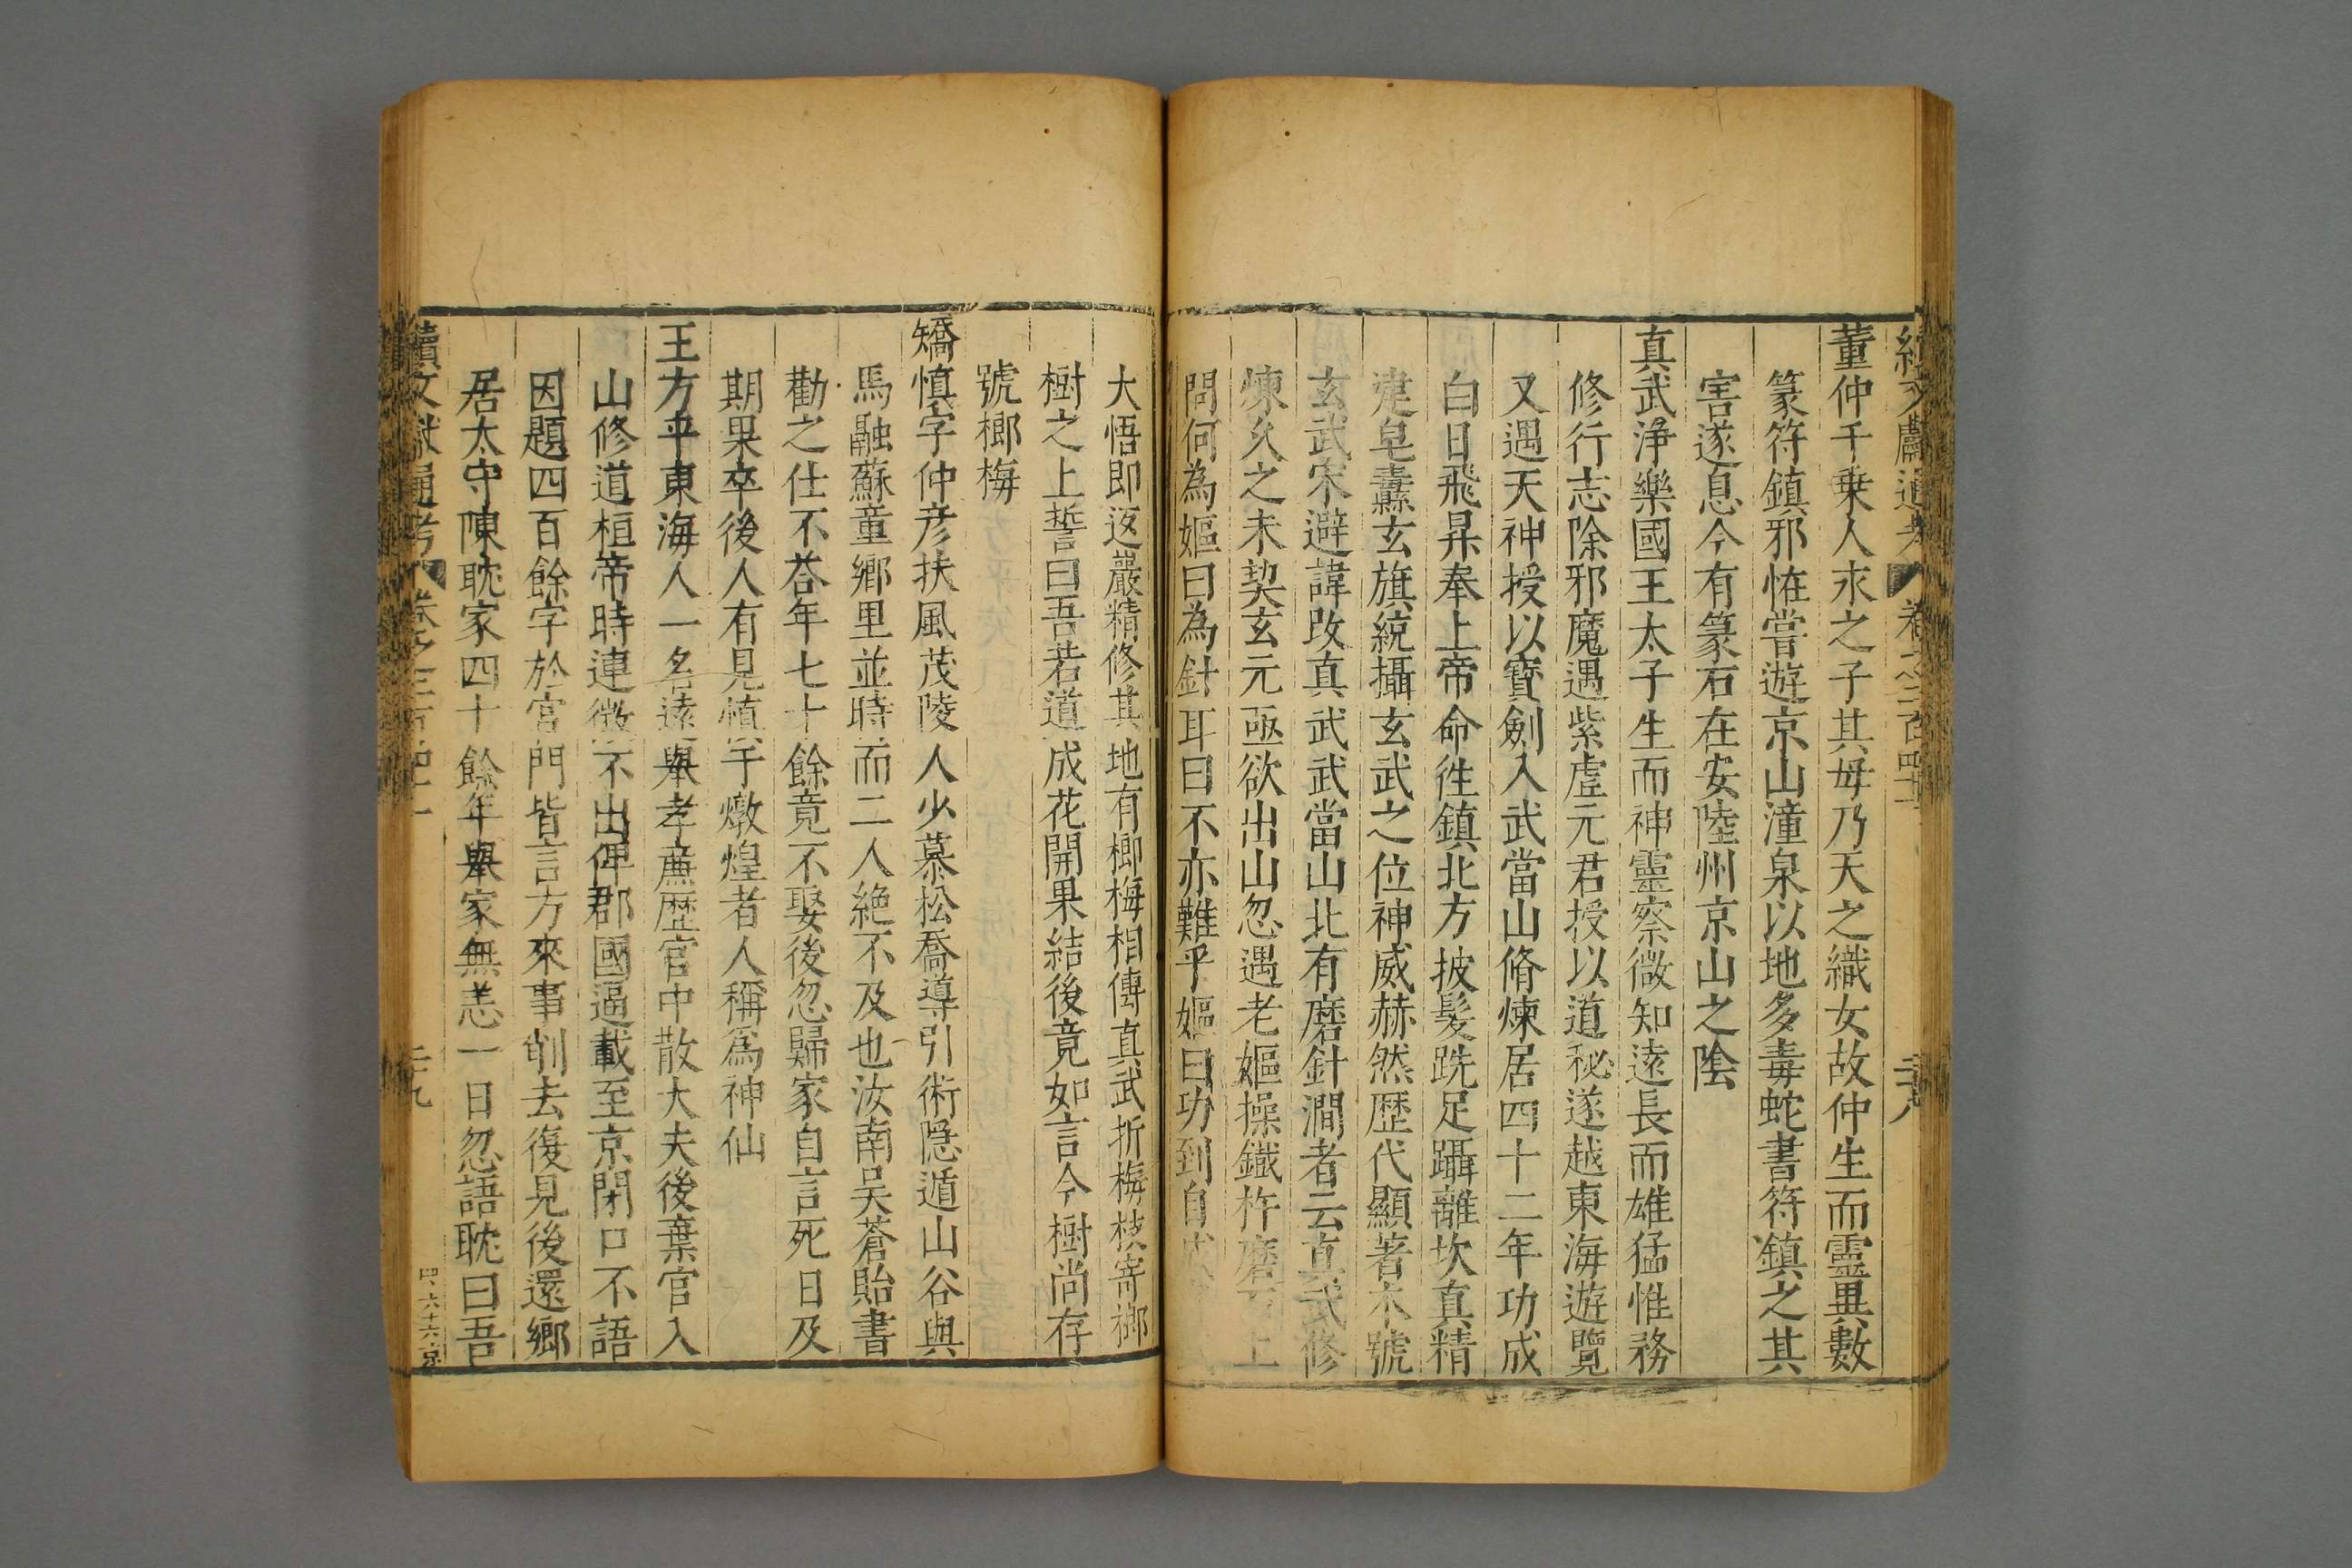 續文獻通考 卷之二百四十 二十八
董仲千乗人永之子其母乃天之織女故仲生而靈異數
篆符鎮邪恠嘗遊京山潼泉以地多毒蛇書符鎮之其
害遂息今有篆石在安陸州京山之陰
真武淨樂國王太子生而神靈察微知逺長而雄猛惟務
修行志除邪魔遇紫虗元君授以道秘遂越東海遊覽
又遇天神授以寳劍入武當山脩煉居四十二年功成
白日飛昇奉上帝命徃鎮北方披髮跣足躡離坎真精
建皂纛玄旗統攝玄武之位神威赫然歴代顯著本號
玄武宋避諱改真武武當山北有磨針澗者云真武修
煉乆之未契玄元亟欲出山忽遇老嫗操鐵杵磨石上
問何為嫗曰為針耳曰不亦難乎嫗曰功到自成
大悟即返嚴精修其地有榔梅相傳真武折梅枝寄榔
樹之上誓曰吾若道成花開果結後竟如言今樹尚存
號榔梅
矯慎字仲彦扶風茂陵人少慕松喬導引術隱遁山谷與
馬融蘇童鄉里並時而二人絶不及也汝南吴蒼貽書
勸之仕不荅年七十餘竟不娶後忽歸家自言死日及
期果卒後人有見慎于燉煌者人稱為神仙
王方平東海人一名逺舉孝亷歴官中散大夫後棄官入
山修道桓帝時連徵不出俾郡國逼載至京閉口不語
因題四百餘字於宮門皆言方來事削去復見後還鄉
居太守陳耽家四十餘年舉家無恙一日忽語耽曰吾
續文獻通考 卷之二百四十 二十九